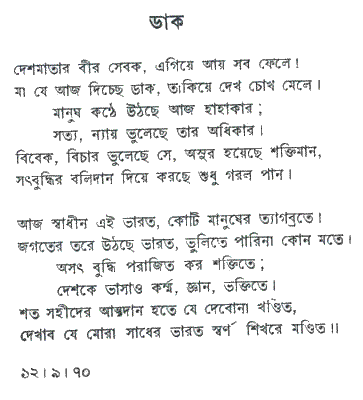 ডাক
দেশমাতার বীর সেবক, এগিয়ে আয় সব ফেলে!
মা যে আজ দিচ্ছে ডাক, তাকিয়ে দেখ চোখ মেলে।
মানুষ কণ্ঠে উঠছে আজ হাহাকার;
সত্য, ন্যায় ভুলেছে তার অধিকার।
বিবেক, বিচার ভুলেছে সে, অসুর হয়েছে শক্তিমান,
সৎবুদ্ধির বলিদান দিয়ে করছে শুধু গরল পান।
আজ স্বাধীন এই ভারত, কোটি মানুষের ত্যাগব্রতে।
জগতের তরে উঠছে ভারত, ভুলিতে পারিনা কোন মতে।
অসৎ বুদ্ধি পরাজিত কর শক্তিতে;
দেশকে ভাসাও কর্ম্ম, জ্ঞান, ভক্তিতে।
শত সহীদের আত্মদান হতে যে দেবোনা খণ্ডিত,
দেখাব যে মোরা সাধের ভারত স্বর্ণ শিখরে মণ্ডিত॥
১২।৯।৭০